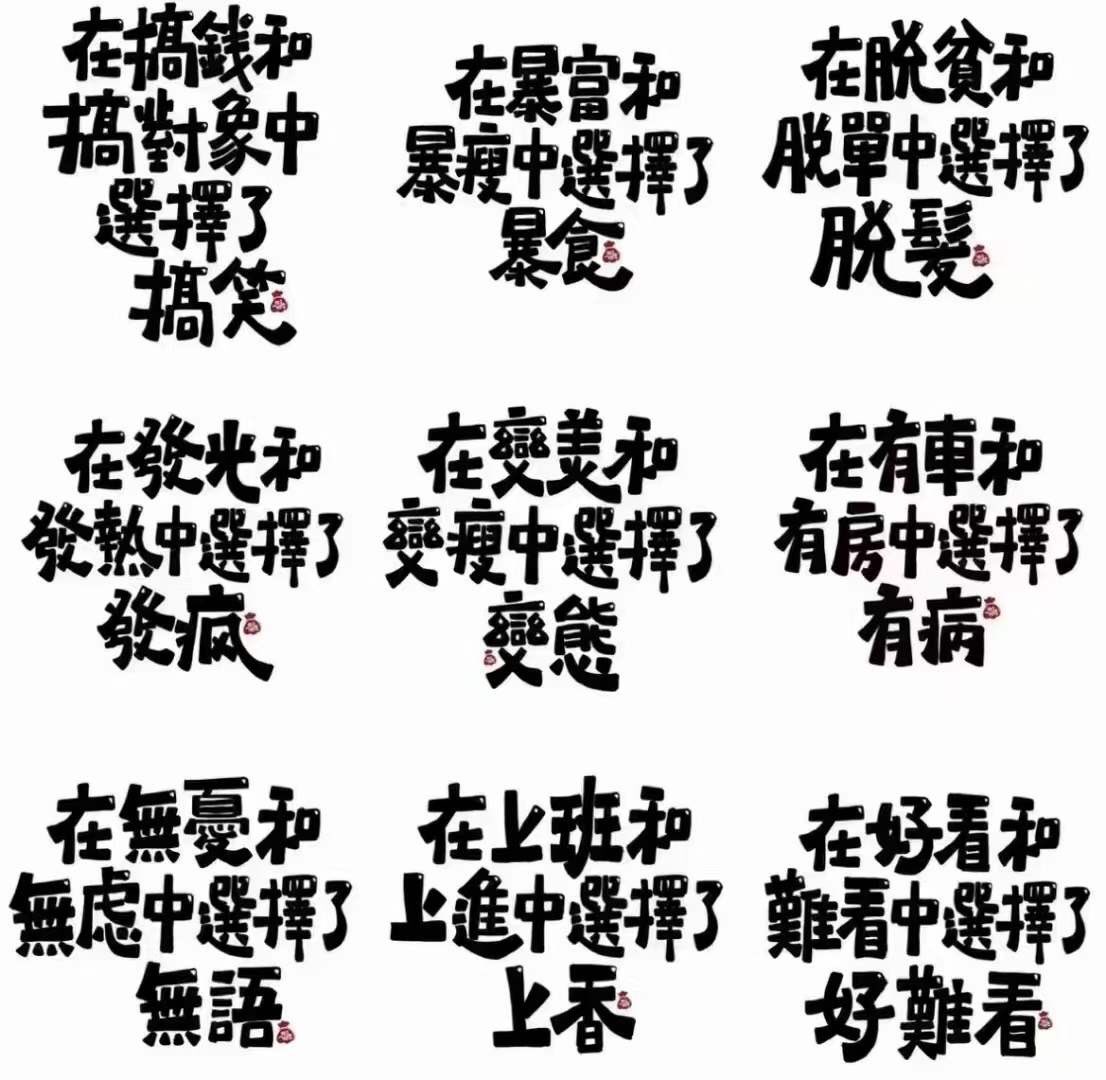 在搞錢和
搞對象中
選擇了
搞笑
在暴富和
暴瘦中選擇了
暴食
在脱貧和
脱單中選擇了
脱髮
在發光和
發熱中選擇了
發疯
在變美和
變瘦中選擇了
變態
在有車和
有房中選擇了
有病
在無憂和
無虑中選擇了
無語
在上班和
上進中選擇了
上香
在好看和
難看中選擇了
好難看